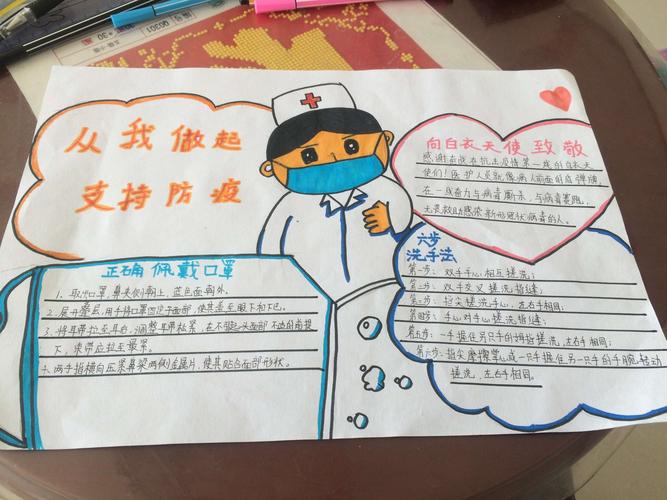 从我做起
支持防疫
向白衣天使致敬
感谢奋战在抗击疫情第一线的白衣天
使们！医护人员就像病人前面的肩弹牌，
在一线奋力与病毒厮杀，与病毒赛跑，
无畏救助感染新形冠状病毒的人。
正确佩戴口罩
1.取出口罩，鼻夹侧朝上，蓝色面朝外。
2.展开叠层，用手将口罩固定于面部，使其盖至眼下和下巴。
3.将耳带拉至耳后，调整耳带松紧，在不引起头面部不适的前提
下，束带应拉至最紧。
4.两手指横向压紧鼻梁两侧金属片，使其贴合面部形状。
六步
洗手法
第一步：双手手心相互搓洗；
第二步：双手交叉搓洗指缝；
第三步：指尖搓洗手心，左右手相同；
第四步：手心对手心搓洗指缝；
第五步：一手握住另只手的拇指搓洗，左右手相同；
第六步：指尖摩擦掌心或一只手握住另一只手的手腕转动
搓洗，左右手相同。
00301